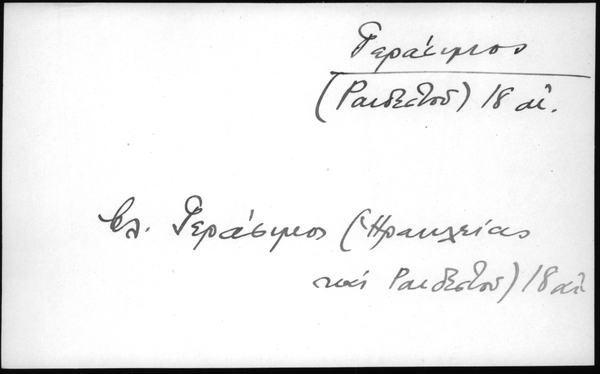 Γεράσιμος
(Ραιδεστοῦ) 18 αἰ.
βλ. Γεράσιμος (Ἡρακλείας
καὶ Ραιδεστοῦ) 18 αἰ.